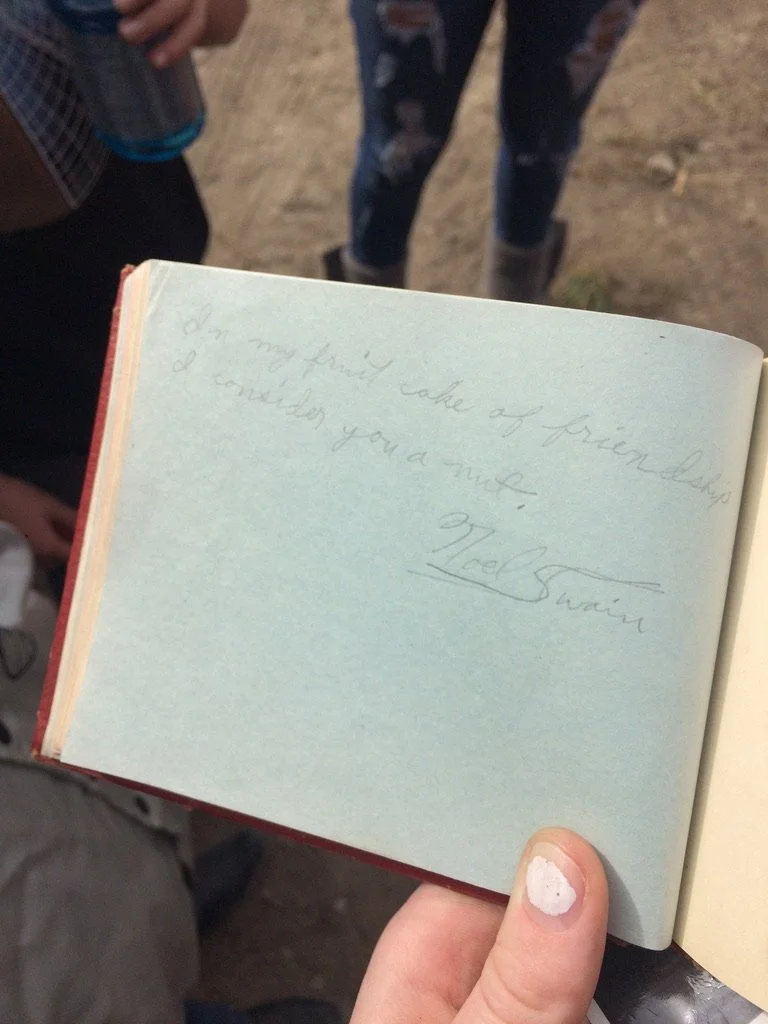 In my fruit cake of friendship
I consider you a nut.
Noel Swain